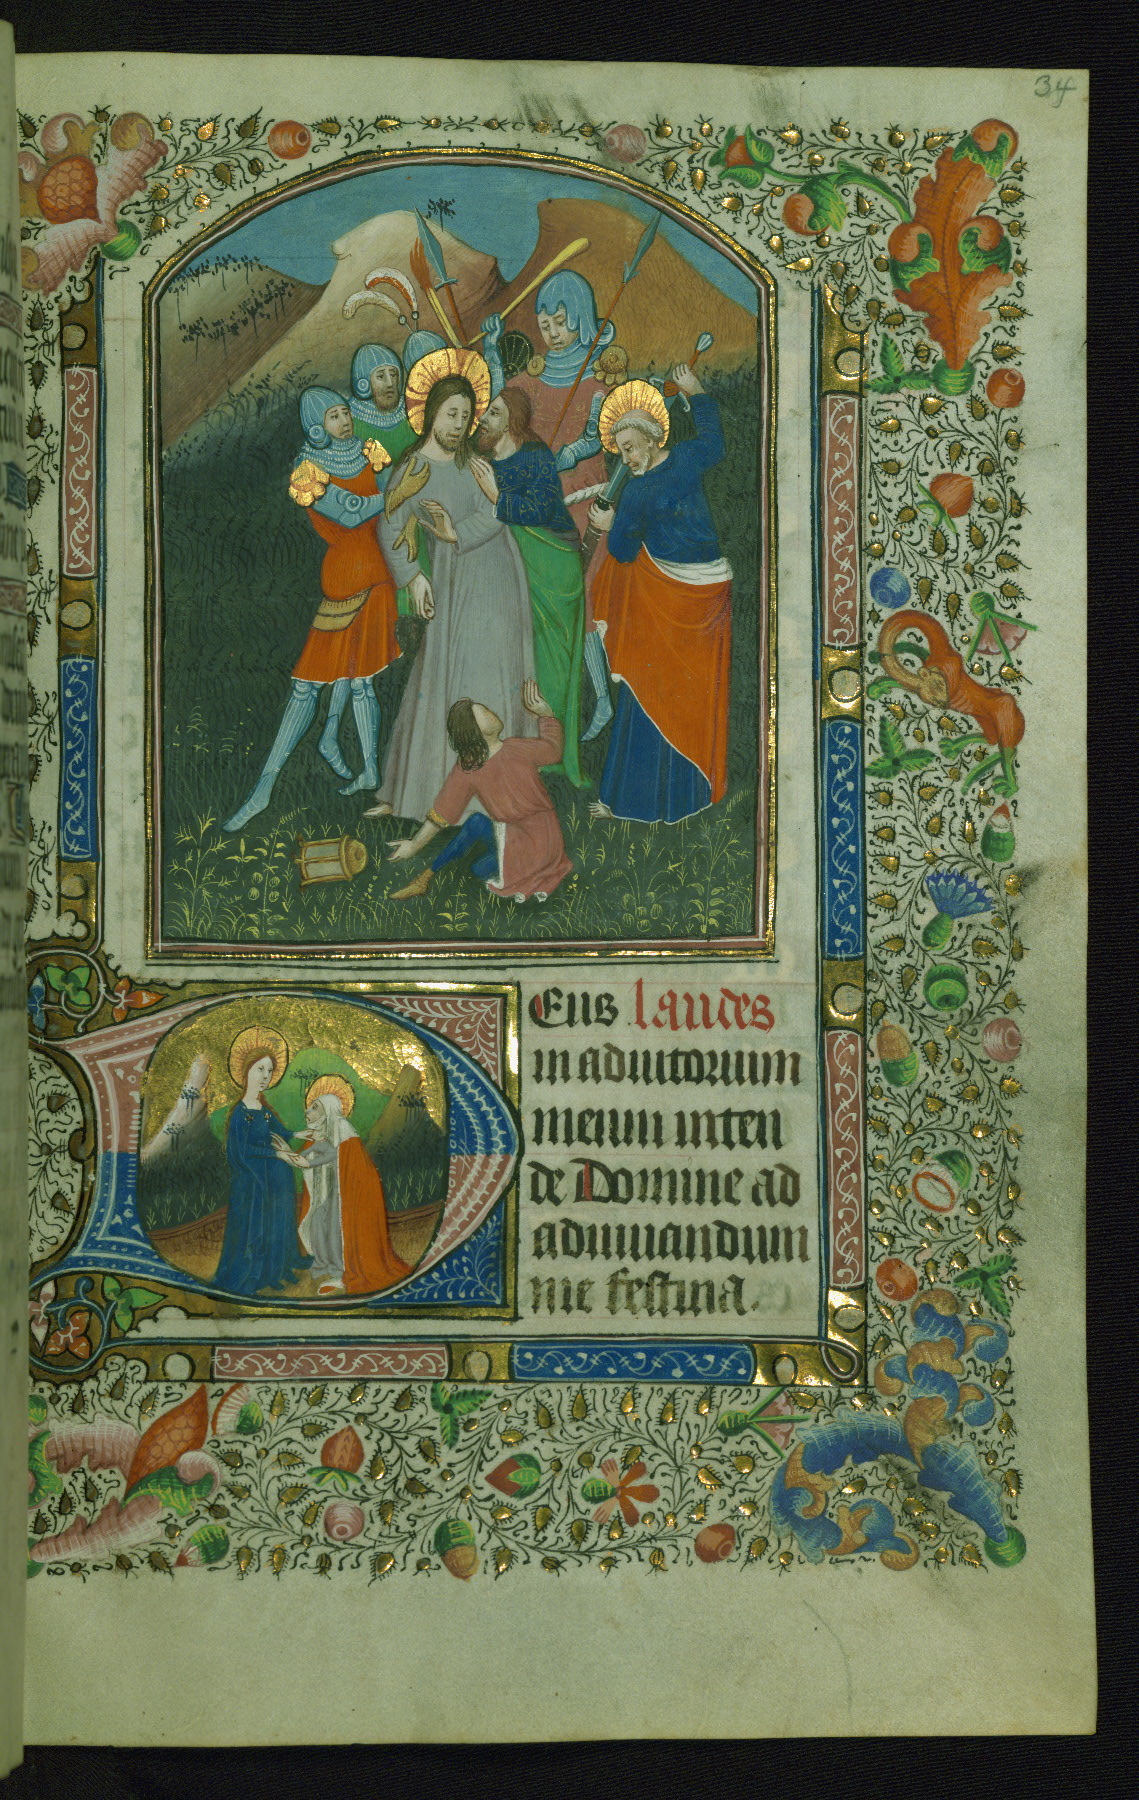 34
Eus laudes
in adiutorium
meum inten
de Domine ad
adiuuandum
me festina.